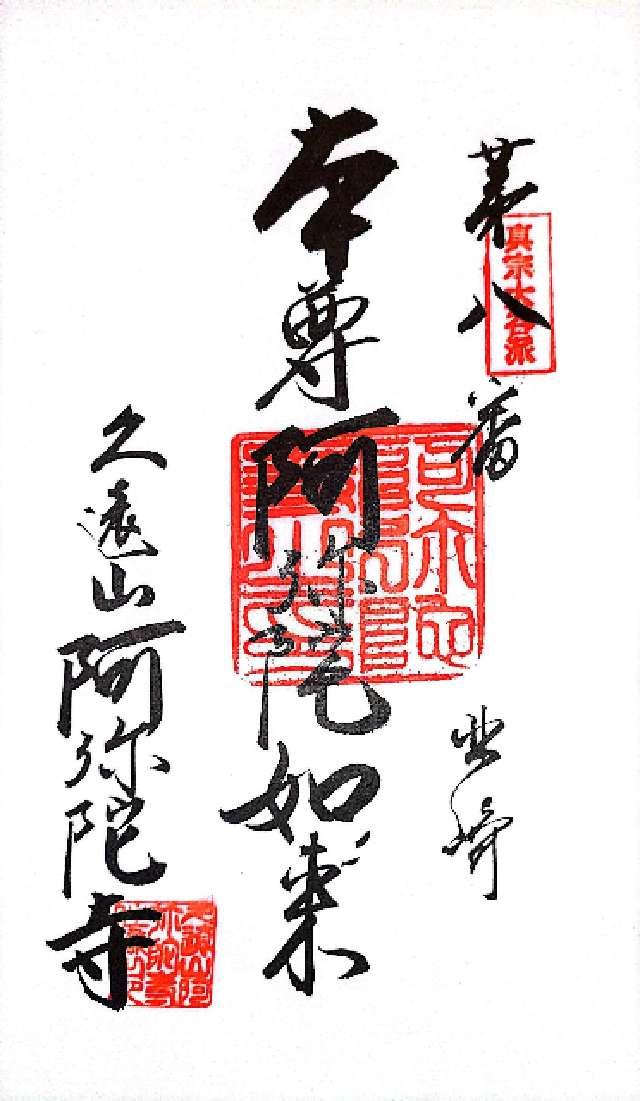 第八番
真宗大谷派
本尊阿弥陀如来
久遠山阿弥陀寺